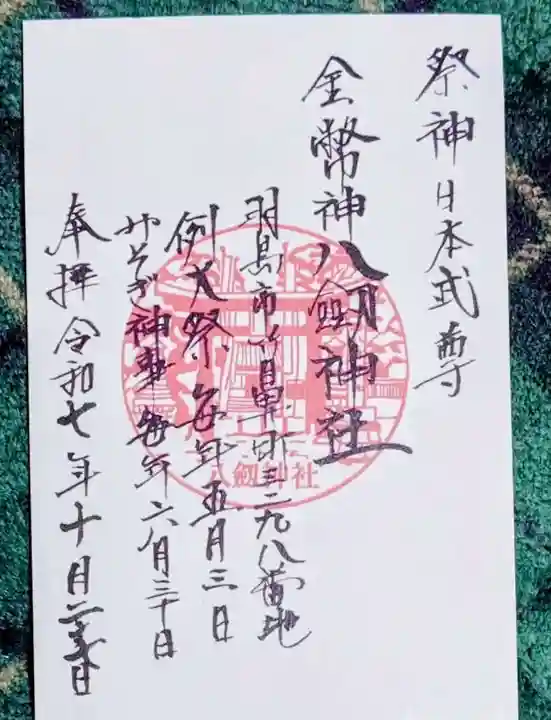 祭神日本武尊
金幣神八劔神社
羽島市竹鼻町三二九八番地
例大祭毎年五月三日
みそぎ神事毎年六月三十日
奉拝令和七年十月二日
八劔神社